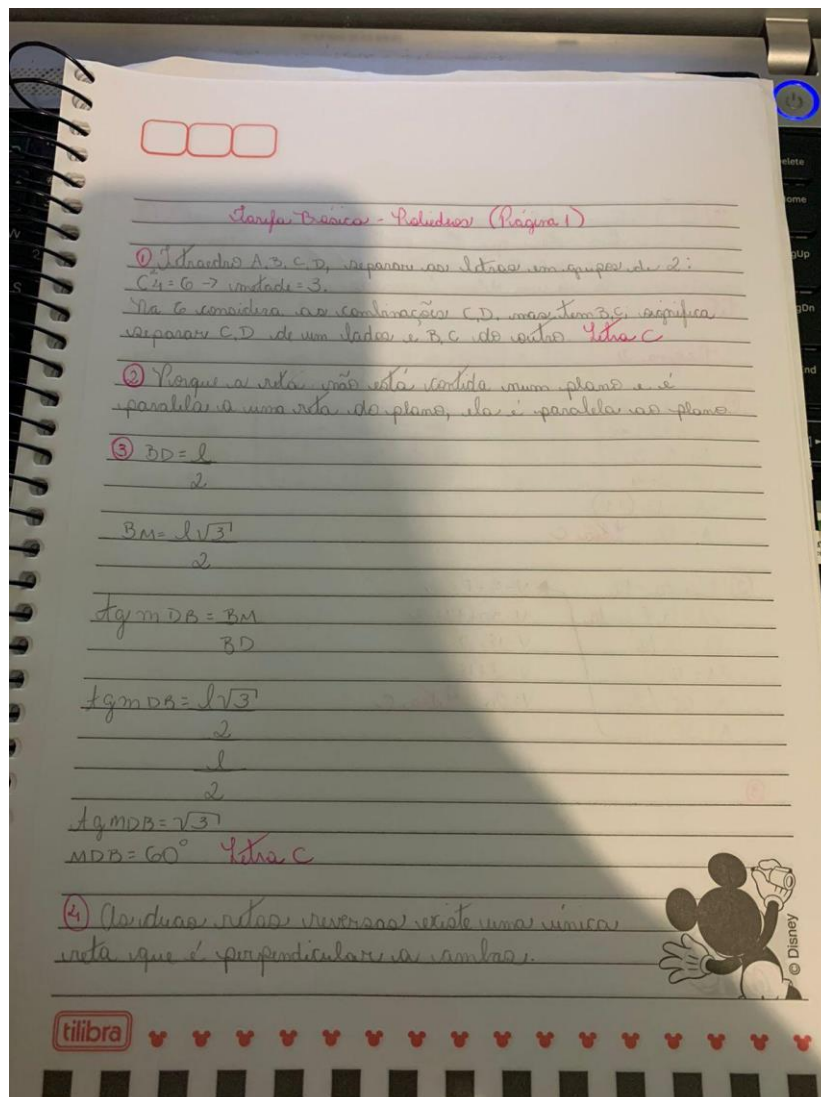 Tarefa Básica - Poliedros (Página 1)
① Tetraedro A, B, C, D, separar as letras em grupos de 2:
C²4 = 6 → metade = 3.
Na 6 considera as combinações C,D, mas tem B,C, significa
separar C,D de um lado e B,C do outro Letra C
② Porque a reta não está contida num plano e é
paralela a uma reta do plano, ela é paralela ao plano
③ BD = l
2
BM = l√3
2
tg mDB = BM
BD
tg mDB = l√3
2
l
2
tg mDB = √3
MDB = 60° Letra C
④ As duas retas reversas existe uma única
reta que é perpendicular a ambas.
© Disney
tilibra
elete
ome
gUp
gDn
nd